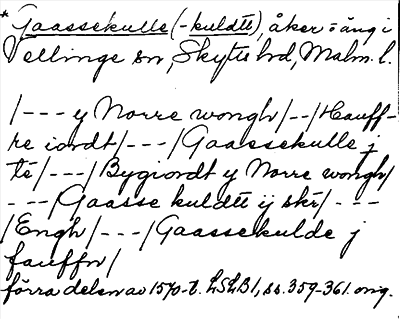 * Gaassekulle (-kuldtt), åker o äng i
Vellinge sn, Skytts hd, Malm. l.
/--- y Norre wongh/--/Hauff-
re iordt/---/Gaassekulle j
te/---/Bygiordt y Norre wongh/
---/Gaasse kuldtt ij skr/---
/Engh/---/Gaassekulde j
fauffn/
förra delen av 1570-t. LSLB1, ss. 359-361. orig.